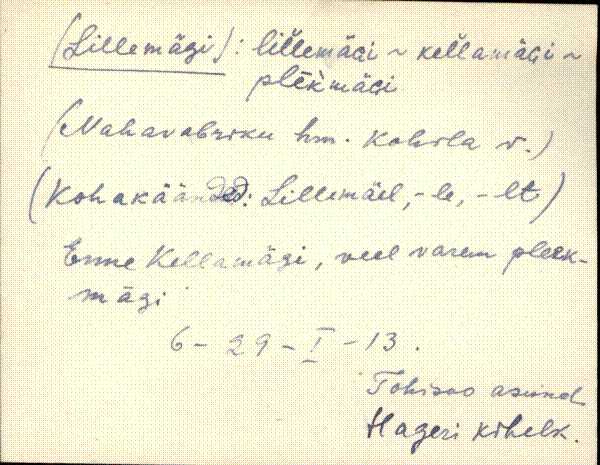 (Lillemägi): lil̆lemäGi ~ kel̆lamäGi ~
plēk̀mäGi
(Nahavabriku hm. Kohila v.)
(Kohakäänded: Lillemäel, -le, -lt)
Enne Kellamägi, veel varem pleek-
mägi
6 - 29 - I - 13.
Tohisoo asund.
Hageri kihelk.